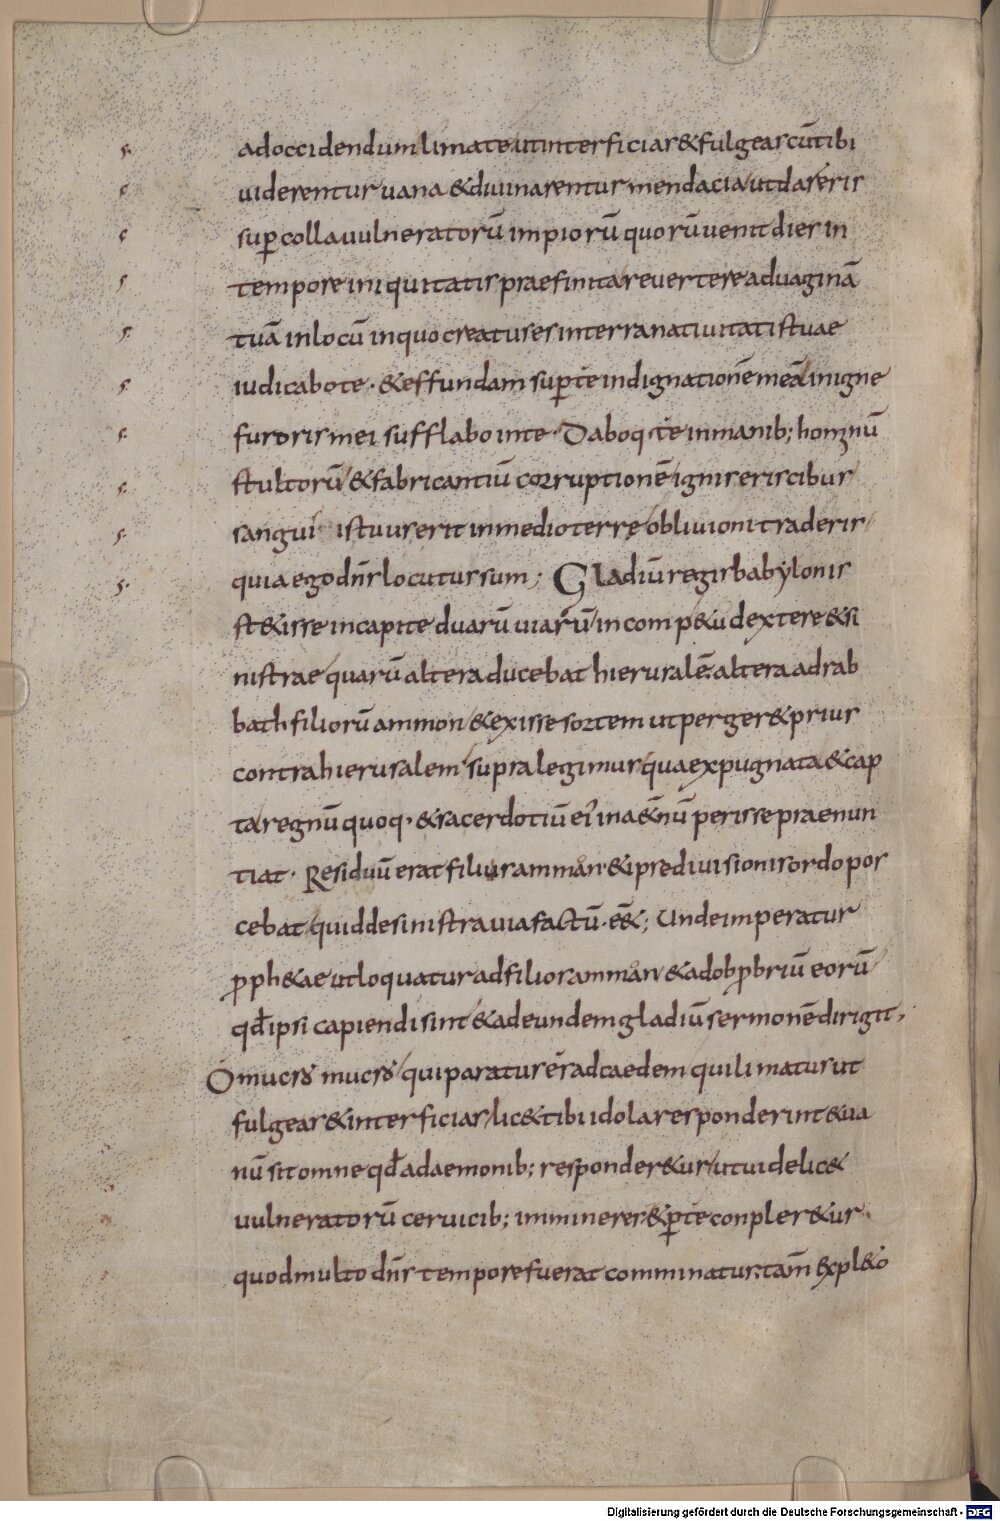 ad occidendum lima te ut interficias & fulgeas cū tibi
uiderentur uana & diuinarentur mendacia ut dareris
sup colla uulneratorū impiorū quorū uenit dies in
tempore iniquitatis praefinita reuertere ad uaginā
tuā in locū in quo creatus es in terra natiuitatis tuae
iudicabo te · & effundam sup te indignationē meā in igne
furoris mei sufflabo in te · Daboq; te in manib; hominū
stultorū & fabricantiū corruptionē ignis eris cibus
sangui s tuus erit in medio terrę obliuioni traderis
quia ego dn̄s locutus sum ; Gladiū regis babylonis
st&isse in capite duarū uiarū in comp&u dextere & si
nistrae quarū altera ducebat hierusalē altera ad rab
bath filiorū ammon & exisse sortem ut perger& prius
contra hierusalem supra legimus qua expugnata & cap
ta regnū quoq· & sacerdotiū ei in a&nū perisse praenun
tiat · Residuū erat filius ammān & ipse diuisionis ordo pos
cebat quid de sinistra uia factū · ee& ; Unde imperatur
pph&ae ut loquatur ad filios ammān & ad obpbriū eorū
qđ ipsi capiendi sint & ad eundem gladiū sermonē dirigit ,
O mucro mucro qui paratus es ad caedem qui limatus ut
fulgeas & interficias lic& tibi idola responderint & ua
nū sit omne qđ a daemonib; responder&ur ut uidelic&
uulneratorū ceruicib; immineres & p te conpler&ur ·
quod multo dn̄s tempore fuerat comminatus tam̄ expl&o
Digitalisierung gefördert durch die Deutsche Forschungsgemeinschaft - DFG